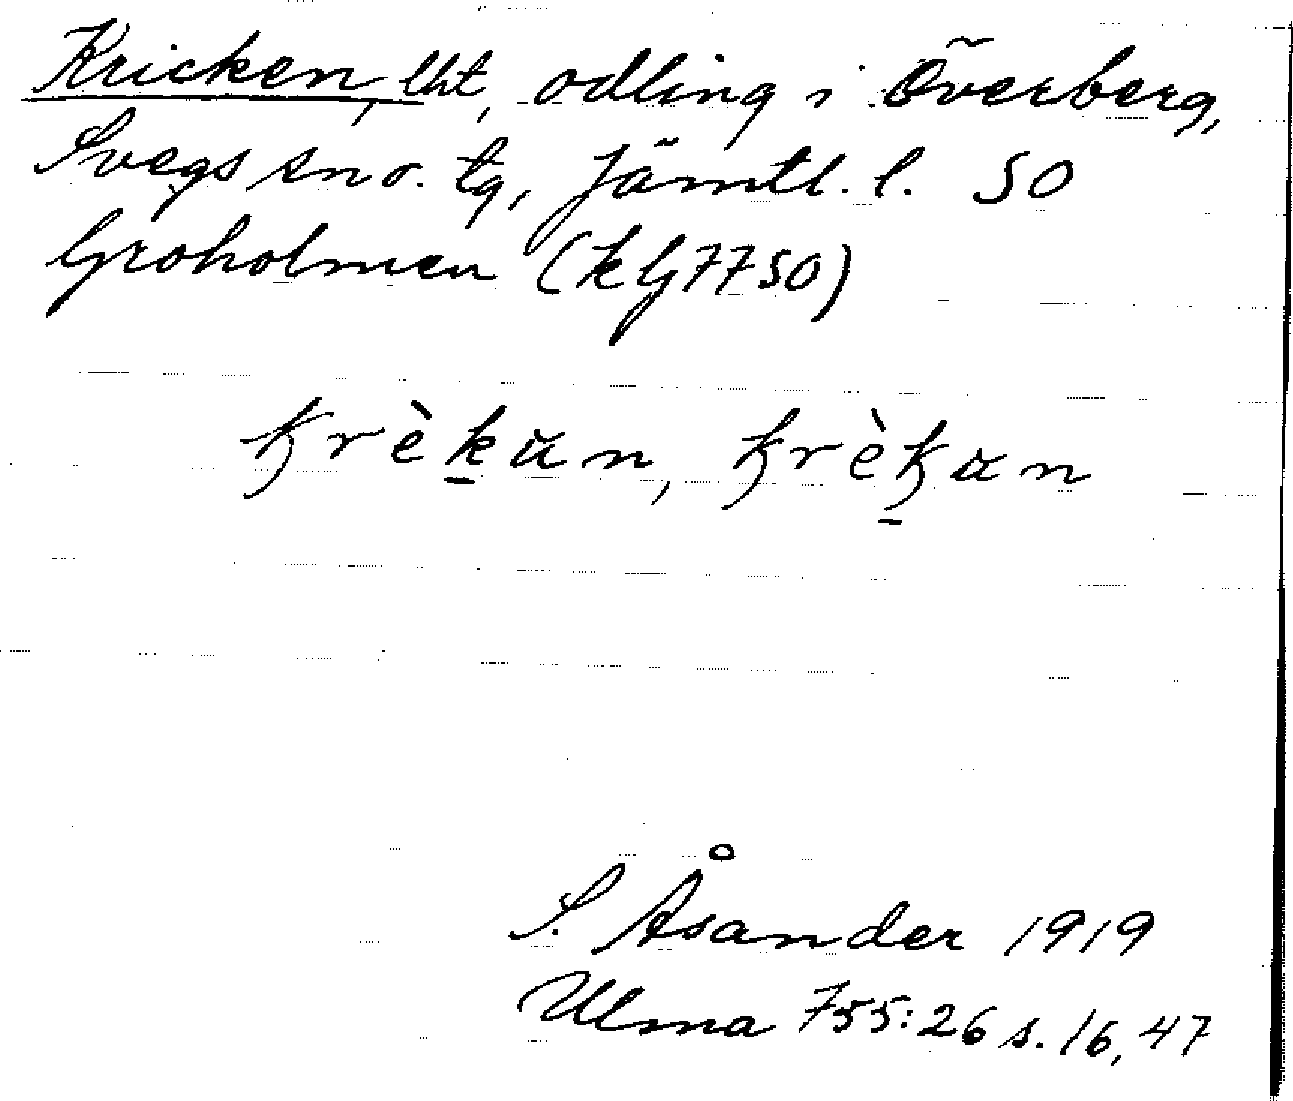 Kricken, lht, odling i Överberg,
Svegs sn o. tg, Jämtl. l. SO
Groholmen (kG7750)
krèkän, krèkän
S. Åsander 1919
Ulma 755:26 s. 16, 47